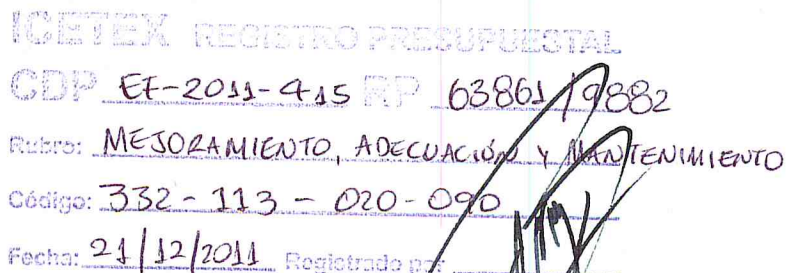 ICETEX REGISTRO PRESUPUESTAL
CDP EF-2011-415 RP 63861/9882
Rubro: MEJORAMIENTO, ADECUACIÓN Y MANTENIMIENTO
Código: 332-113-020-090
Fecha: 21/12/2011 Registrado por